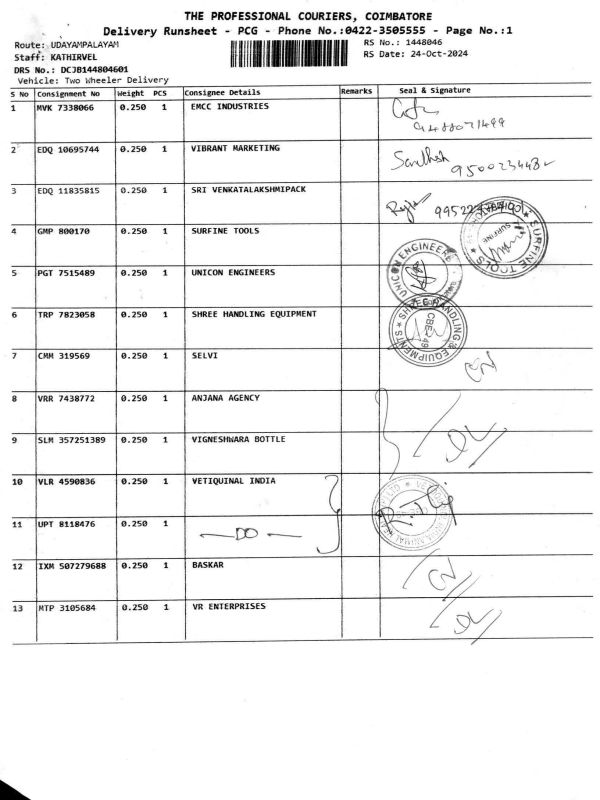 THE PROFESSIONAL COURIERS, COIMBATORE
Delivery Runsheet - PCG - Phone No.:0422-3505555 - Page No.:1
Route: UDAYAMPALAYAM
RS No.: 1448046
Staff: KATHIRVEL
RS Date: 24-Oct-2024
DRS No.: DCJB144804601
Vehicle: Two Wheeler Delivery
S No Consignment No Weight PCS Consignee Details Remarks Seal & Signature
1 MVK 7338066 0.250 1 EMCC INDUSTRIES
2 EDQ 10695744 0.250 1 VIBRANT MARKETING
3 EDQ 11835815 0.250 1 SRI VENKATALAKSHMIPACK
4 GMP 800170 0.250 1 SURFINE TOOLS SURFINE TOOLS
5 PGT 7515489 0.250 1 UNICON ENGINEERS UNICON ENGINEERS
6 TRP 7823058 0.250 1 SHREE HANDLING EQUIPMENT SHREE HANDLING & EQUIPMENTS
7 CMM 319569 0.250 1 SELVI
8 VRR 7438772 0.250 1 ANJANA AGENCY
9 SLM 357251389 0.250 1 VIGNESHWARA BOTTLE DL
10 VLR 4590836 0.250 1 VETIQUINAL INDIA
11 UPT 8118476 0.250 1 —DO—
12 IXM 507279688 0.250 1 BASKAR
13 MTP 3105684 0.250 1 VR ENTERPRISES DL